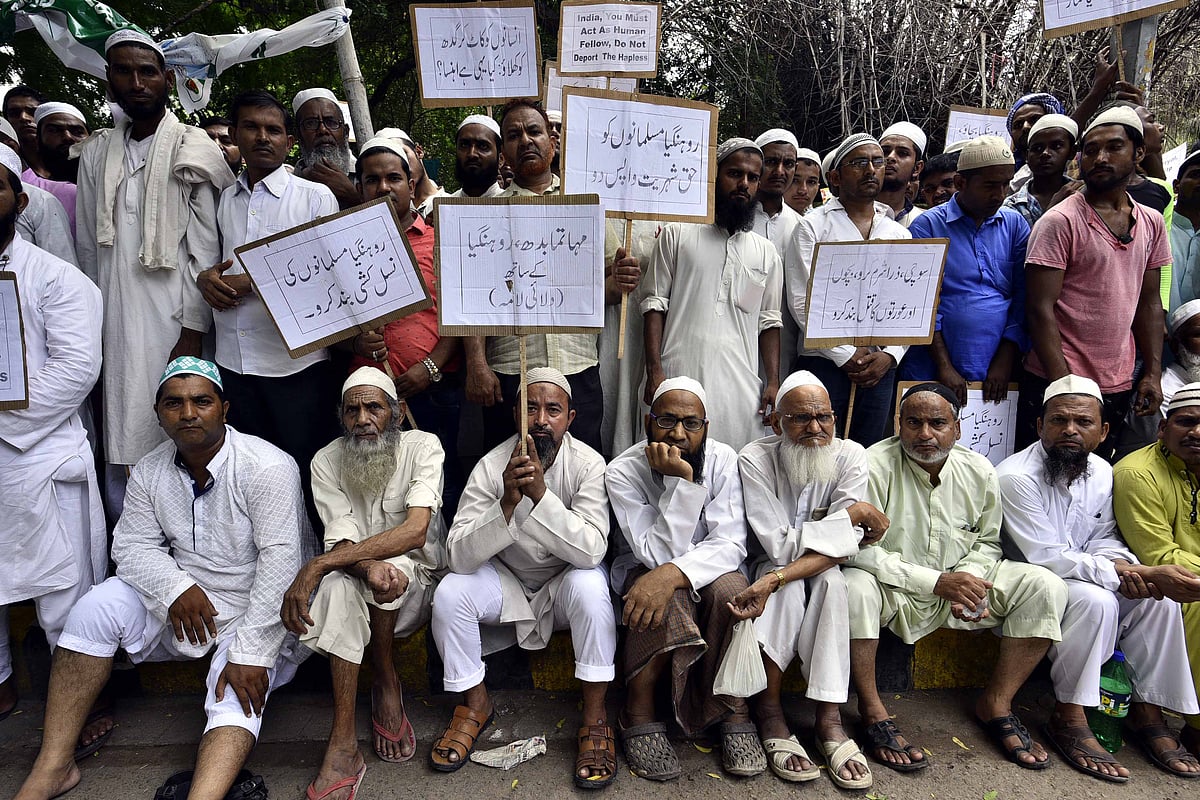 انسانوں کو کاٹ کر گدھ
کو کھلاؤ: کیا یہی ہے اہنسا؟
India, You Must
Act As Human
Fellow, Do Not
Deport The Hapless
روہنگیا مسلمانوں کو
حق شہریت واپس دو
روہنگیا مسلمانوں کی
نسل کشی بند کرو۔
مہاتما بدھ، روہنگیا
کے ساتھ
(دلائی لامہ)
سوچی، ذرا شرم کرو، بچوں
اور عورتوں کا قتل بند کرو
روہنگیا مسلمانوں